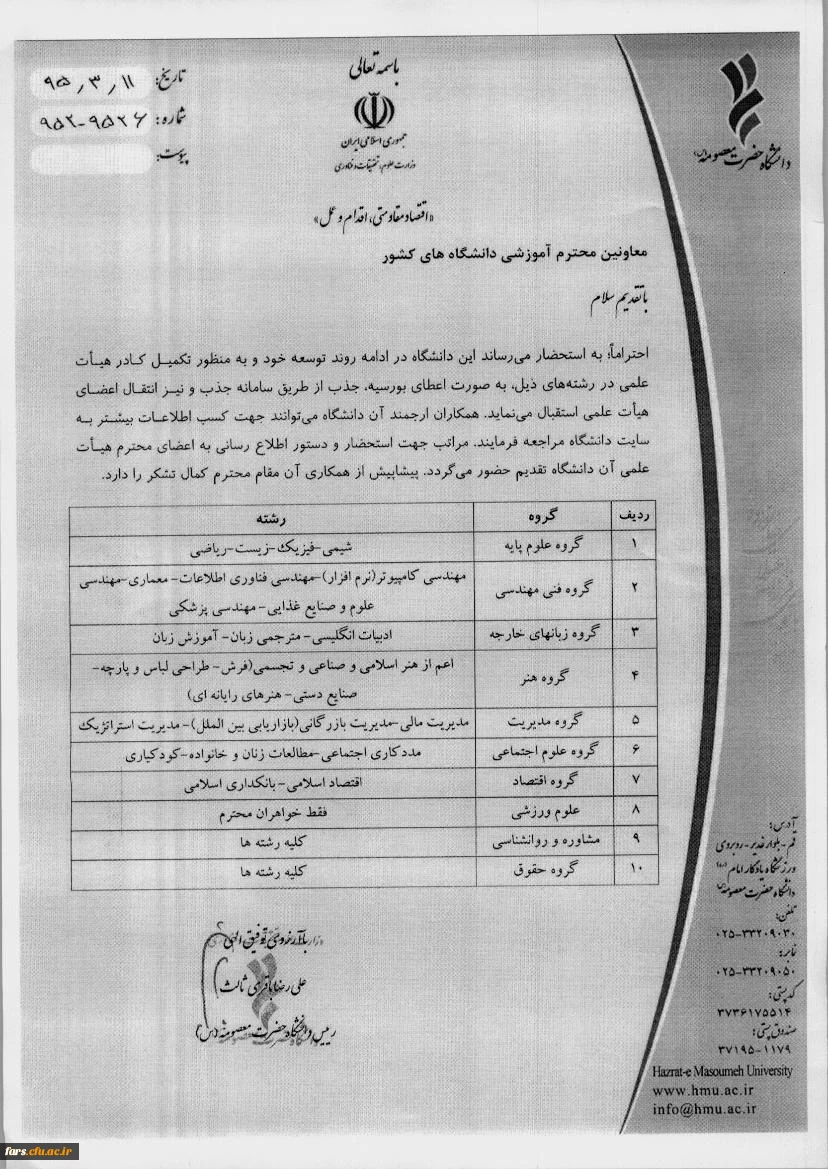 باسمه تعالی
جمهوری اسلامی ایران
وزارت علوم، تحقیقات و فناوری
تاریخ: ۹۵٫۳٫۱۱
شماره: ۹۵۲-۹۵۲۶
پیوست:
دانشگاه حضرت معصومه(س)
«اقتصاد مقاومتی، اقدام و عمل»
معاونین محترم آموزشی دانشگاه های کشور
با تقدیم سلام
احتراماً؛ به استحضار می‌رساند این دانشگاه در ادامه روند توسعه خود و به منظور تکمیل کادر هیأت
علمی در رشته‌های ذیل، به صورت اعطای بورسیه، جذب از طریق سامانه جذب و نیز انتقال اعضای
هیأت علمی استقبال می‌نماید. همکاران ارجمند آن دانشگاه می‌توانند جهت کسب اطلاعات بیشتر به
سایت دانشگاه مراجعه فرمایند. مراتب جهت استحضار و دستور اطلاع رسانی به اعضای محترم هیأت
علمی آن دانشگاه تقدیم حضور می‌گردد. پیشاپیش از همکاری آن مقام محترم کمال تشکر را دارد.
ردیف گروه رشته
۱ گروه علوم پایه شیمی-فیزیک-زیست-ریاضی
۲ گروه فنی مهندسی مهندسی کامپیوتر(نرم افزار)-مهندسی فناوری اطلاعات- معماری-مهندسی
علوم و صنایع غذایی-مهندسی پزشکی
۳ گروه زبانهای خارجه ادبیات انگلیسی- مترجمی زبان- آموزش زبان
۴ گروه هنر اعم از هنر اسلامی و صناعی و تجسمی(فرش- طراحی لباس و پارچه-
صنایع دستی- هنرهای رایانه ای)
۵ گروه مدیریت مدیریت مالی-مدیریت بازرگانی(بازاریابی بین الملل)-مدیریت استراتژیک
۶ گروه علوم اجتماعی مددکاری اجتماعی-مطالعات زنان و خانواده-کودکیاری
۷ گروه اقتصاد اقتصاد اسلامی-بانکداری اسلامی
۸ علوم ورزشی فقط خواهران محترم
۹ مشاوره و روانشناسی کلیه رشته ها
۱۰ گروه حقوق کلیه رشته ها
با آرزوی توفیق الهی
علی رضا باقری ثالث
رییس دانشگاه حضرت معصومه(س)
آدرس:
قم-بلوار غدیر-روبروی
ورزشگاه یادگار امام(ره)
دانشگاه حضرت معصومه(س)
تلفن:
۰۲۵-۳۳۲۰۹۰۳۰
نمابر:
۰۲۵-۳۳۲۰۹۰۵۰
کد پستی:
۳۷۳۶۱۷۵۵۱۴
صندوق پستی:
۳۷۱۹۵-۱۱۷۹
Hazrat-e Masoumeh University
www.hmu.ac.ir
info@hmu.ac.ir
fars.cfu.ac.ir